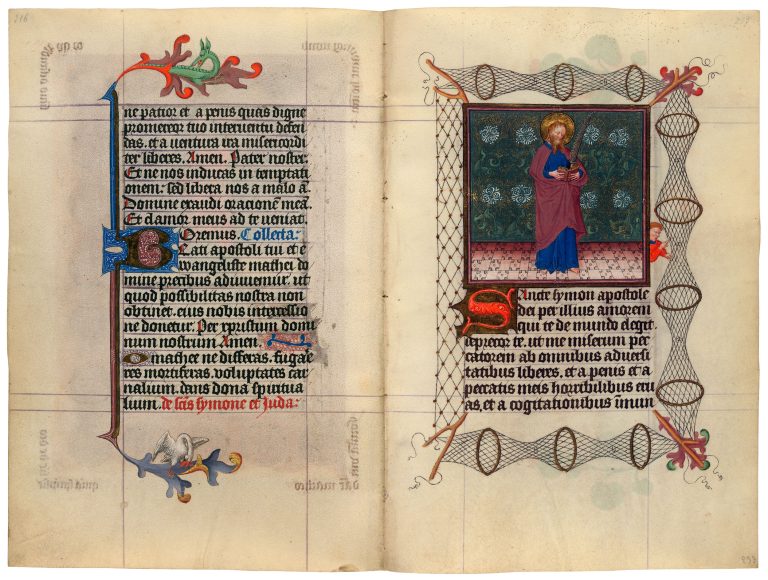 216
ne patior et a penis quas digne
promereor tuo interventu defen
das. et a ventura ira misericordi
ter liberes. Amen. Pater noster.
Et ne nos inducas in temptati
onem: sed libera nos a malo a͞.
Domine exaudi orationem mea͞.
Et clamor meus ad te ueniat.
Oremus. Collecta:
Beati apostoli tui et e
wangeliste mathei do
mine precibus adiuuemur. ut
quod possibilitas nostra non
obtinet. eius nobis intercessio
ne donetur. Per xpristum domi
num nostrum. Amen.
O mathee ne differas. fugae
res mortiferas. voluptates car
nalium. dans dona spiritua
lium. de sc͞tis symone et Juda:
Sancte symon apostole
dei per illius amorem
qui te de mundo elegit.
deprecor te. ut me miserum pec
catorem ab omnibus aduersi
tatibus liberes. et a penis et a
peccatis meis horribilibus eru
as. et a cogitationibus i͞mun